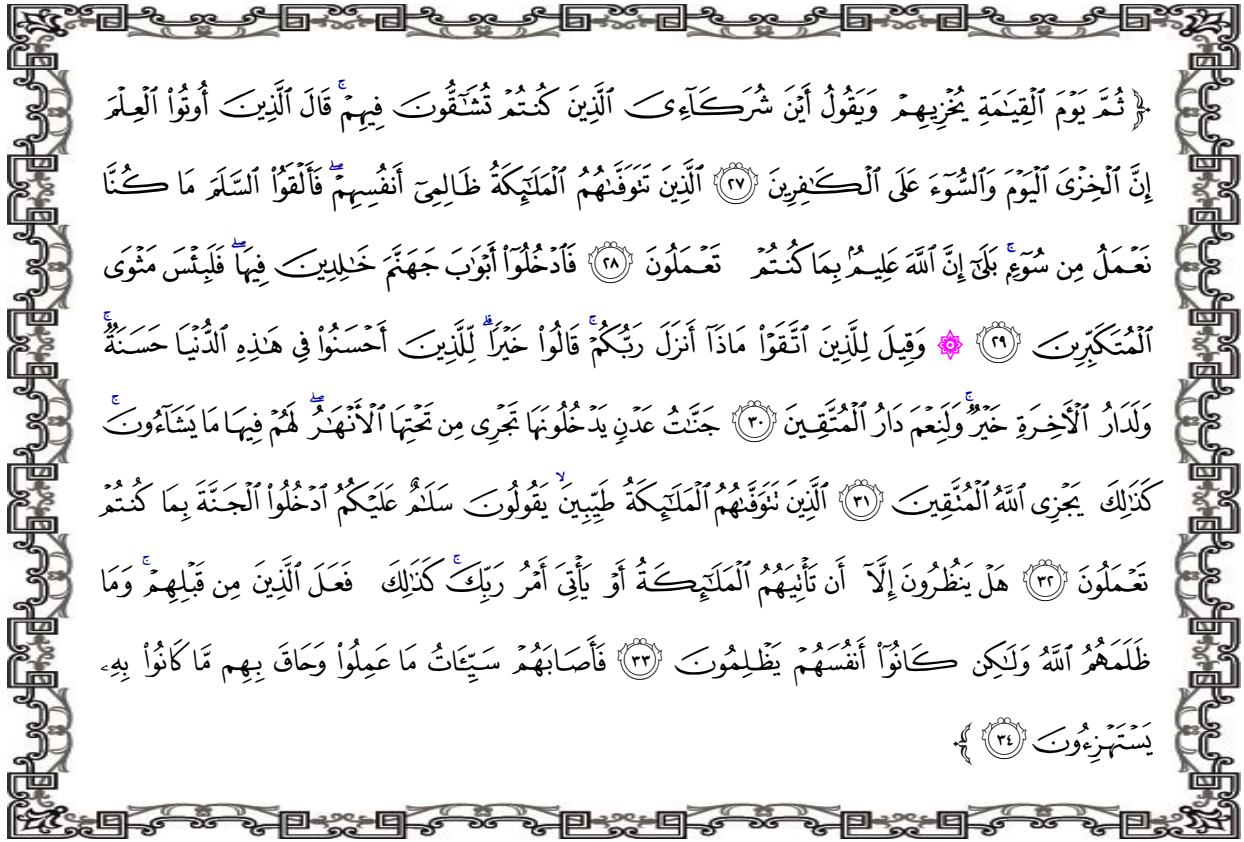 ﴿ ثُمَّ يَوْمَ ٱلْقِيَـٰمَةِ يُخْزِيهِمْ وَيَقُولُ أَيْنَ شُرَكَآءِىَ ٱلَّذِينَ كُنتُمْ تُشَـٰٓقُّونَ فِيهِمْ ۚ قَالَ ٱلَّذِينَ أُوتُوا۟ ٱلْعِلْمَ
إِنَّ ٱلْخِزْىَ ٱلْيَوْمَ وَٱلسُّوٓءَ عَلَى ٱلْكَـٰفِرِينَ ﴿٢٧﴾ ٱلَّذِينَ تَتَوَفَّىٰهُمُ ٱلْمَلَـٰٓئِكَةُ ظَالِمِىٓ أَنفُسِهِمْ ۖ فَأَلْقَوُا۟ ٱلسَّلَمَ مَا كُنَّا
نَعْمَلُ مِن سُوٓءٍۭ ۚ بَلَىٰٓ إِنَّ ٱللَّهَ عَلِيمٌۢ بِمَا كُنتُمْ تَعْمَلُونَ ﴿٢٨﴾ فَٱدْخُلُوٓا۟ أَبْوَٰبَ جَهَنَّمَ خَـٰلِدِينَ فِيهَا ۖ فَلَبِئْسَ مَثْوَى
ٱلْمُتَكَبِّرِينَ ﴿٢٩﴾ ۞ وَقِيلَ لِلَّذِينَ ٱتَّقَوْا۟ مَاذَآ أَنزَلَ رَبُّكُمْ ۚ قَالُوا۟ خَيْرًا ۗ لِّلَّذِينَ أَحْسَنُوا۟ فِى هَـٰذِهِ ٱلدُّنْيَا حَسَنَةٌ ۚ
وَلَدَارُ ٱلْـَٔاخِرَةِ خَيْرٌ ۚ وَلَنِعْمَ دَارُ ٱلْمُتَّقِينَ ﴿٣٠﴾ جَنَّـٰتُ عَدْنٍ يَدْخُلُونَهَا تَجْرِى مِن تَحْتِهَا ٱلْأَنْهَـٰرُ ۖ لَهُمْ فِيهَا مَا يَشَآءُونَ ۚ
كَذَٰلِكَ يَجْزِى ٱللَّهُ ٱلْمُتَّقِينَ ﴿٣١﴾ ٱلَّذِينَ تَتَوَفَّىٰهُمُ ٱلْمَلَـٰٓئِكَةُ طَيِّبِينَ ۙ يَقُولُونَ سَلَـٰمٌ عَلَيْكُمُ ٱدْخُلُوا۟ ٱلْجَنَّةَ بِمَا كُنتُمْ
تَعْمَلُونَ ﴿٣٢﴾ هَلْ يَنظُرُونَ إِلَّآ أَن تَأْتِيَهُمُ ٱلْمَلَـٰٓئِكَةُ أَوْ يَأْتِىَ أَمْرُ رَبِّكَ ۚ كَذَٰلِكَ فَعَلَ ٱلَّذِينَ مِن قَبْلِهِمْ ۚ وَمَا
ظَلَمَهُمُ ٱللَّهُ وَلَـٰكِن كَانُوٓا۟ أَنفُسَهُمْ يَظْلِمُونَ ﴿٣٣﴾ فَأَصَابَهُمْ سَيِّـَٔاتُ مَا عَمِلُوا۟ وَحَاقَ بِهِم مَّا كَانُوا۟ بِهِۦ
يَسْتَهْزِءُونَ ﴿٣٤﴾ ﴾